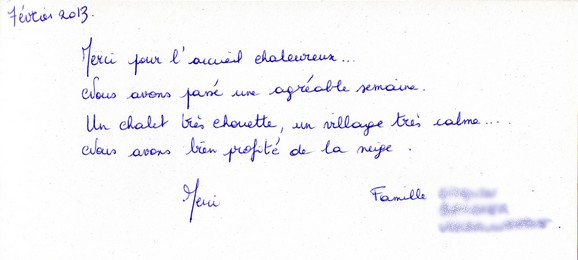 Février 2013.
Merci pour l'accueil chaleureux...
Nous avons passé une agréable semaine.
Un chalet très chouette, un village très calme....
Nous avons bien profité de la neige.
Merci
Famille